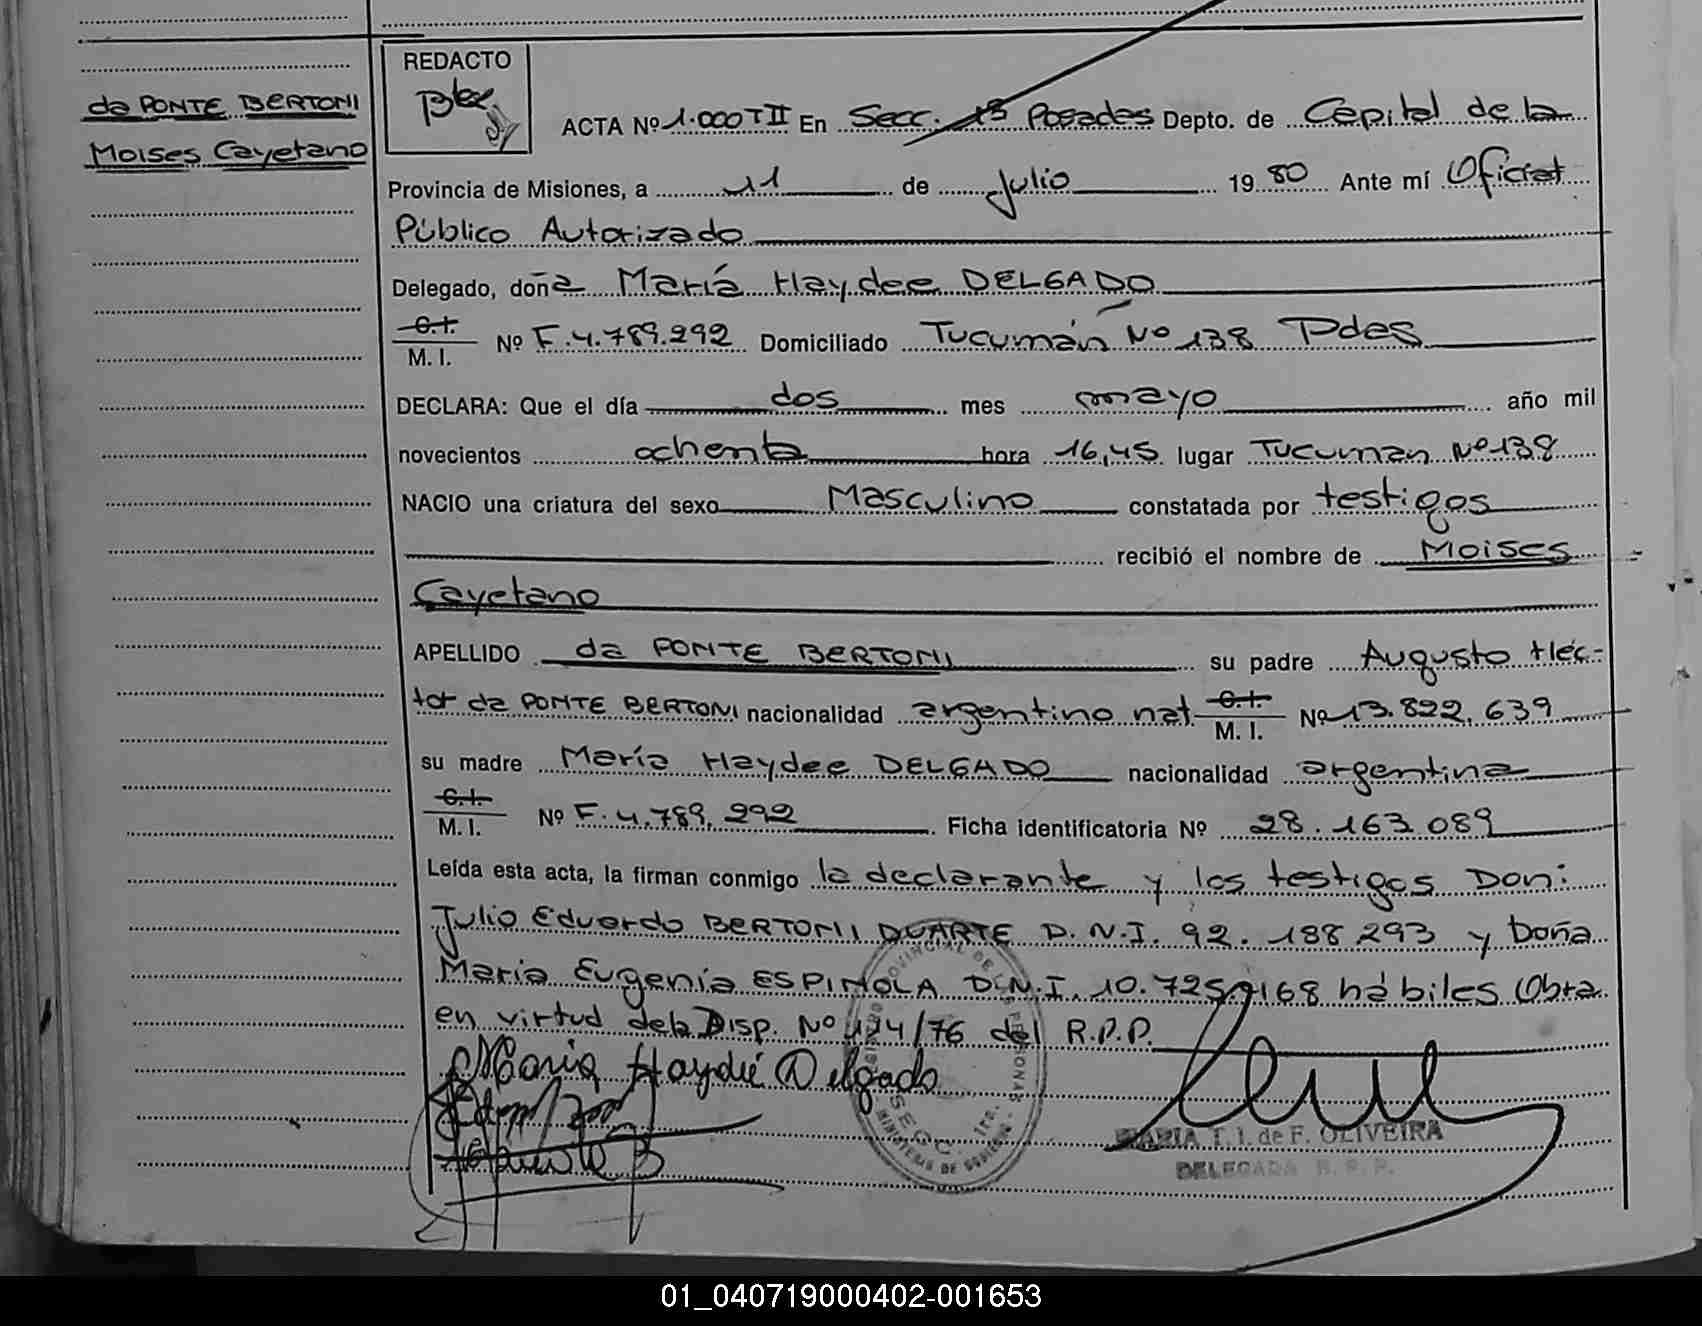 REDACTO
da PONTE BERTONI
Moises Cayetano
ACTA Nº 1.000 T II En Secc. 1ª Posadas Depto. de Capital de la
Provincia de Misiones, a 11 de Julio 1980 Ante mí Oficial
Público Autorizado
Delegado, doña María Haydee DELGADO
C.I. M.I. Nº F. 4.789.292 Domiciliado Tucumán Nº 138 Pdas
DECLARA: Que el día dos mes mayo año mil
novecientos ochenta hora 16,45 lugar Tucuman Nº 138
NACIO una criatura del sexo Masculino constatada por testigos
recibió el nombre de Moises
Cayetano
APELLIDO da PONTE BERTONI su padre Augusto Héc-
tor da PONTE BERTONI nacionalidad argentino nat C.I. M.I. Nº 13.822.639
su madre María Haydee DELGADO nacionalidad argentina
C.I. M.I. Nº F. 4.789.292 Ficha identificatoria Nº 28.163.089
Leída esta acta, la firman conmigo la declarante y los testigos Don:
Julio Eduardo BERTONI DUARTE D.N.I. 92.188293 y Doña
María Eugenia ESPINOLA D.N.I. 10.725.168 hábiles Obra
en virtud de la Disp. Nº /76 del R.P.P.
Maria Haydée Delgado
MARIA T. I. de F. OLIVEIRA
DELEGADA R. P. P.
01_040719000402-001653